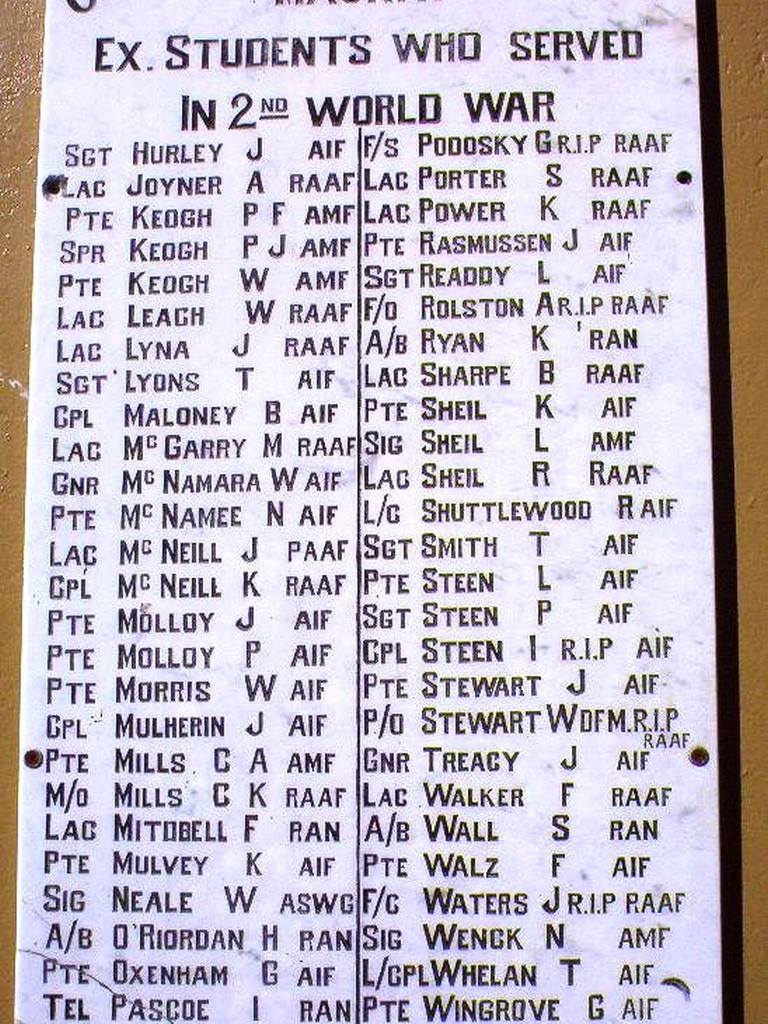 EX. STUDENTS WHO SERVED
IN 2ND WORLD WAR
SGT HURLEY J AIF
LAC JOYNER A RAAF
PTE KEOGH P F AMF
SPR KEOGH P J AMF
PTE KEOGH W AMF
LAC LEACH W RAAF
LAC LYNA J RAAF
SGT LYONS T AIF
CPL MALONEY B AIF
LAC MC GARRY M RAAF
GNR MC NAMARA W AIF
PTE MC NAMEE N AIF
LAC MC NEILL J PAAF
CPL MC NEILL K RAAF
PTE MOLLOY J AIF
PTE MOLLOY P AIF
PTE MORRIS W AIF
CPL MULHERIN J AIF
PTE MILLS C A AMF
M/O MILLS C K RAAF
LAC MITDBELL F RAN
PTE MULVEY K AIF
SIG NEALE W ASWG
A/B O'RIORDAN H RAN
PTE OXENHAM G AIF
TEL PASCOE I RAN
F/S PODOSKY G R.I.P RAAF
LAC PORTER S RAAF
LAC POWER K RAAF
PTE RASMUSSEN J AIF
SGT READDY L AIF
F/O ROLSTON A R.I.P RAAF
A/B RYAN K RAN
LAC SHARPE B RAAF
PTE SHEIL K AIF
SIG SHEIL L AMF
LAC SHEIL R RAAF
L/C SHUTTLEWOOD R AIF
SGT SMITH T AIF
PTE STEEN L AIF
SGT STEEN P AIF
CPL STEEN I R.I.P AIF
PTE STEWART J AIF
P/O STEWART W DFM. R.I.P
RAAF
GNR TREACY J AIF
LAC WALKER F RAAF
A/B WALL S RAN
PTE WALZ F AIF
F/C WATERS J R.I.P RAAF
SIG WENCK N AMF
L/CPL WHELAN T AIF
PTE WINGROVE G AIF